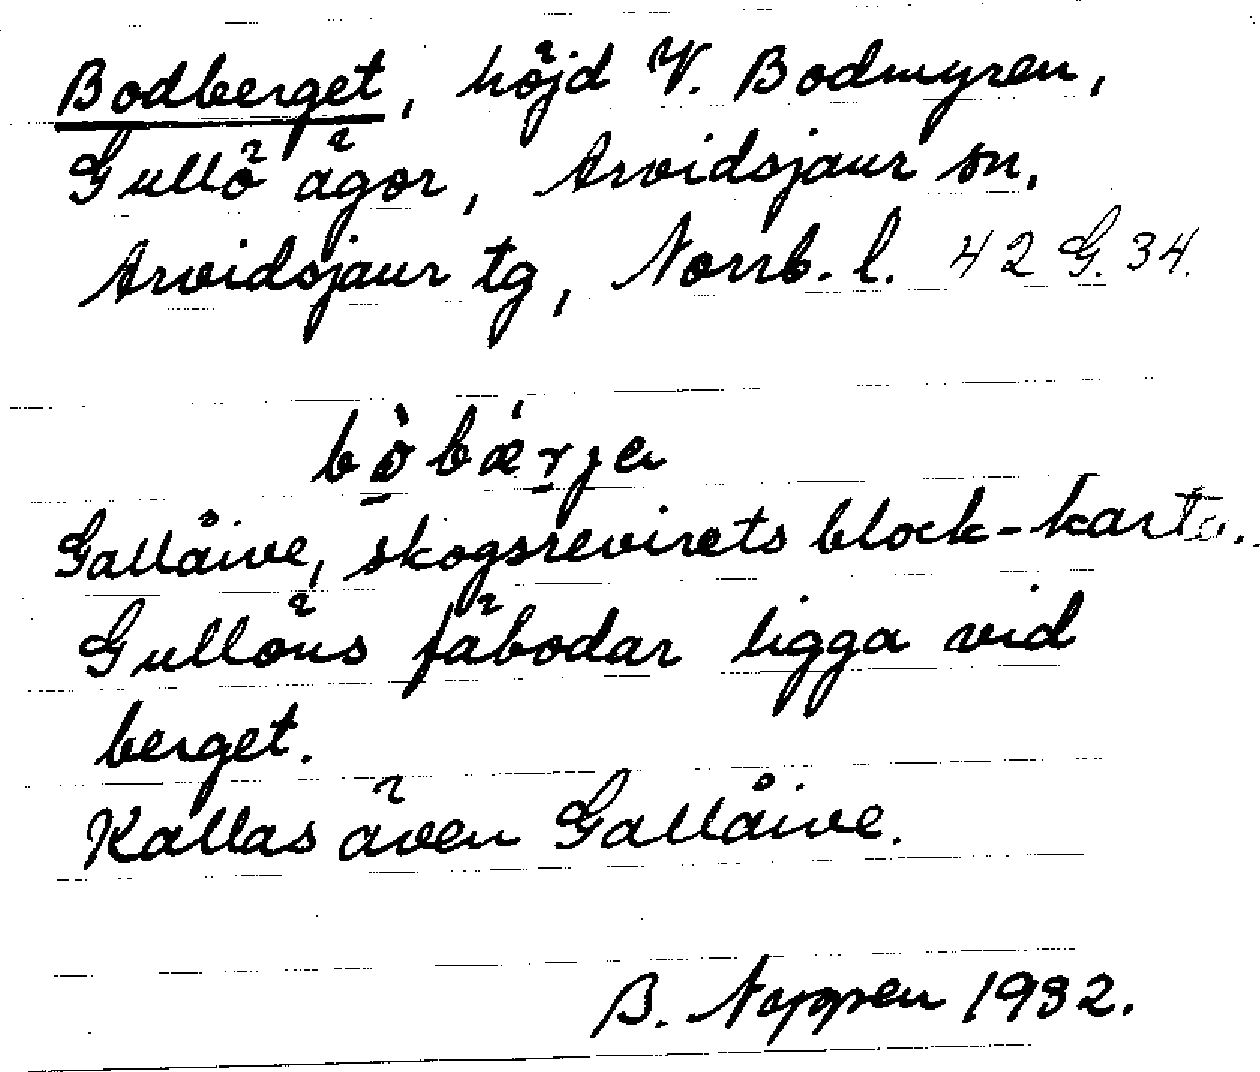 Bodberget, höjd V. Bodmyren,
Gullö ägor, Arvidsjaur sn.
Arvidsjaur tg, Norrb. l. 42 G. 34.
bò̲bæ̀r̲ɟa
Gallåive, skogsrevirets block-karta.
Gullöns fäbodar ligga vid
berget.
Kallas även Gallåive.
B. Noppen 1932.